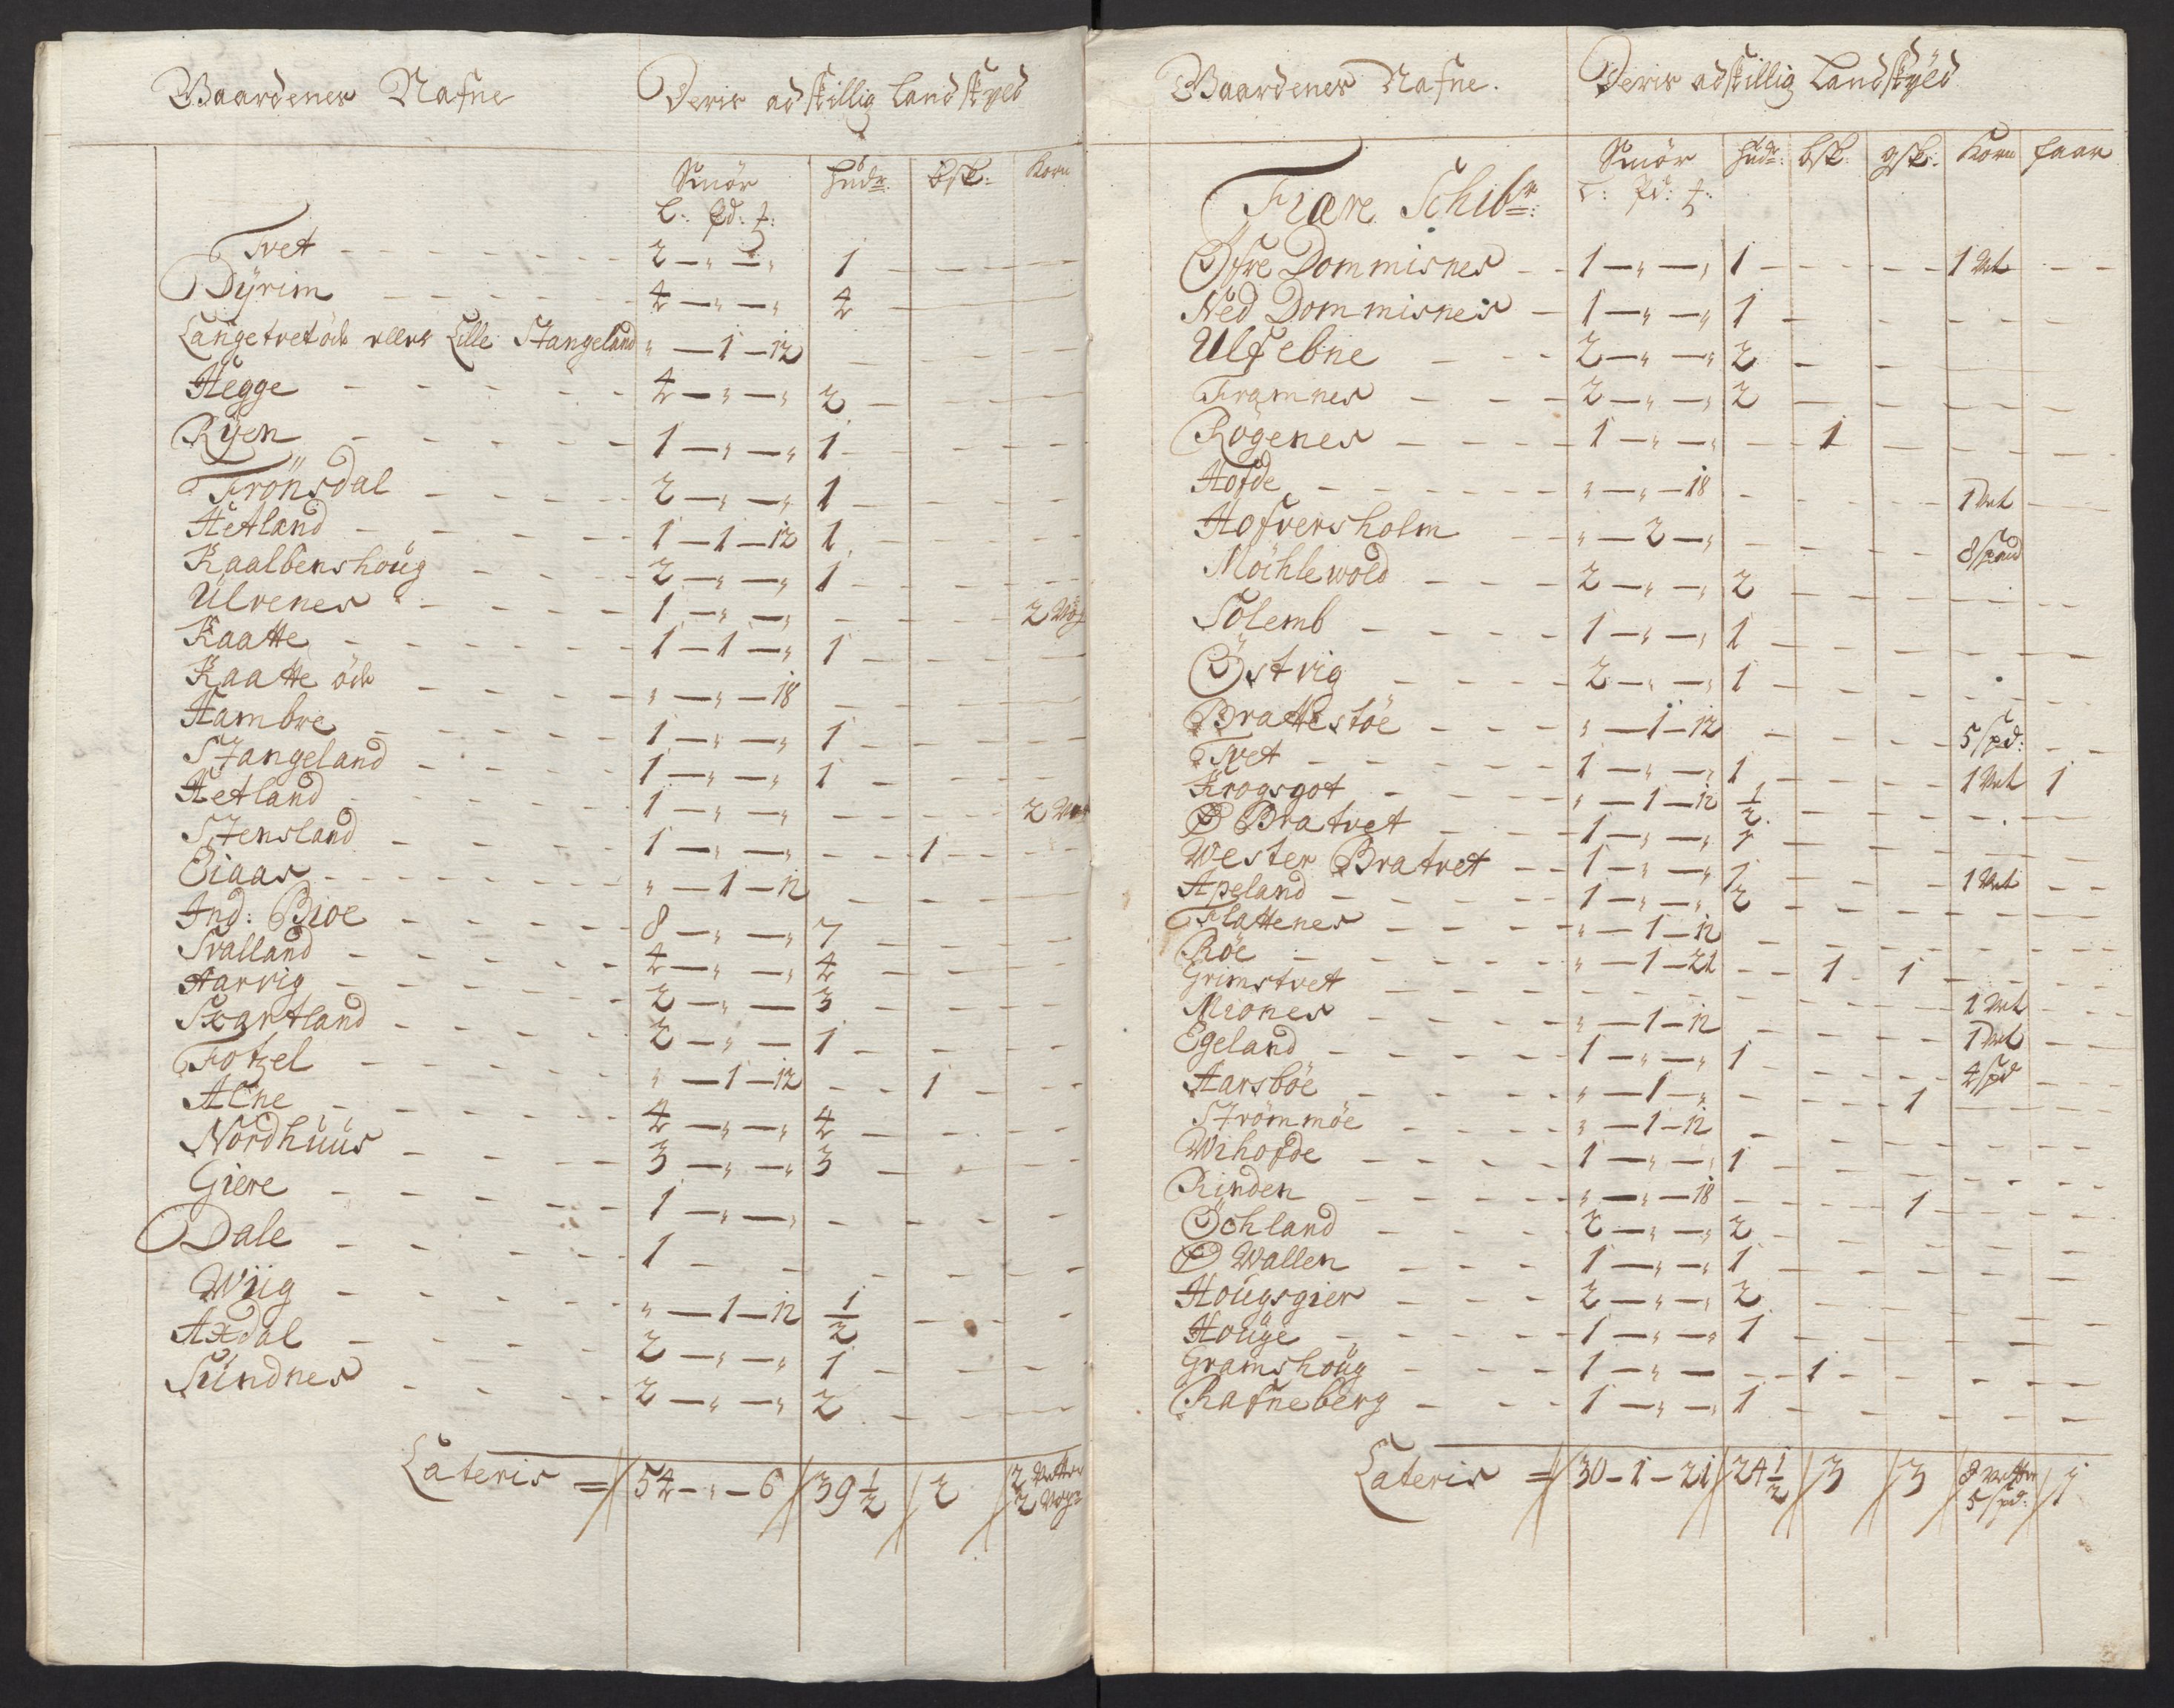 Gaardenes Nafne Deris adskillig Landskyld
Smör hudr: bsk: Korn
L: pd: ℔:
Tvet 2 — " — " 1
Dÿrim 4 — " — " 4
Langetvetöde ellers Lille Stangeland " — 1 — 12
Hegge 4 — " — " 2
Rÿen 1 — " — " 1
Frönsdal 2 — " — " 1
Hetland 1 — 1 — 12 1
Kaalbenshoug 2 — " — " 1
Ulvenes 1 — " — " 2 Vog
Kaatte 1 — 1 — " 1
Kaatte öde " — " — 18
Hambre 1 — " — " 1
Stangeland 1 — " — " 1
Hetland 1 — " — " 2 Vet
Stensland 1 — " — " 1
Eiaas " — 1 — 12
Ind: Bioe 8 — " — " 7
Svalland 4 — " — " 4
Aarvig 2 — " — 3
Svartland 2 — " — 1
Fotzel " — 1 — 12 1
Alne 4 — " — " 4
Nordhuus 3 — " — " 3
Giere 1 — " — "
Dale 1
Wiig " — 1 — 12 1/2
Axdal 2 — " — " 1
Sundnes 2 — " — " 2
Lateris = 54 — " — 6 39 1/2 2 2 Vetter
2 Voger
Gaardenes Nafne. Deris adskillig Landskyld
Smör hudr: bsk: gsk: Korn faar
L: Pd: ℔:
Fiære Schibr:
Öfre Dommisnes 1 — " — " 1 1 Vet
Ned Dommisnes 1 — " — " 1
Ulfebne 2 — " — " 2
Framnes 2 — " — " 2
Rögenes 1 — " — " 1
Hofde " — " — 18 1 Vet
Hofversholm " — 2 — " 8 spand
Möchlewold 2 — " — " 2
Solemb 1 — " — " 1
Östvig 2 — " — " 1
Brattestöe " — 1 — 12 5 spd:
Tvet 1 — " — " 1 1 Vet 1
Krogsgot " — 1 — 12 1/2
Ø Bratvet 1 — " — " 1
Wester Bratvet 1 — " — " 1 1 Vet
Apeland 1 — " — " 2
Flattenes " — 1 — 12
Röe " — 1 — 21 1 1
Grimstvet 1 Vet
Miones " — 1 — 12 1 Vet
Egeland 1 — " — " 1 4 spd
Aarsböe " — 1 — " 1
Strömmöe " — 1 — 12
Wihofde 1 — " — " 1
Rinden " — " — 18 1
Öchland 2 — " — " 2
Ø Wallen 1 — " — " 1
Hougsgier 2 — " — " 2
Houge 1 — " — " 1
Gramshoug 1 — " — 1
Rafneberg 1 — " — " 1
Lateris = 30 — 1 — 21 24 1/2 3 3 8 Vetter 1
5 spd: